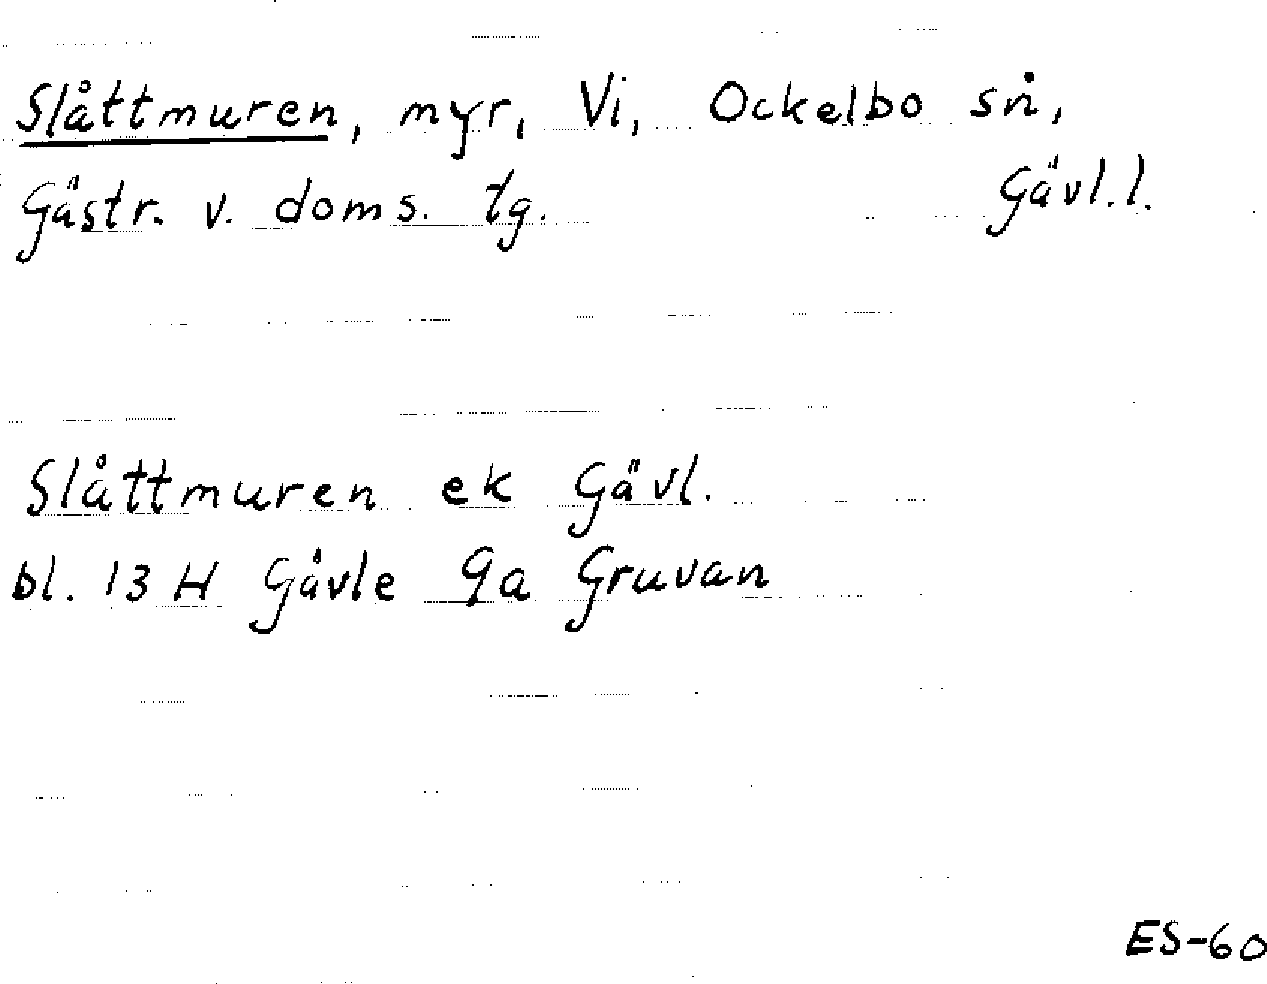 Slåttmuren, myr, Vi, Ockelbo sn,
Gästr. v. doms. tg. Gävl.l.
Slåttmuren ek Gävl.
bl. 13 H Gävle 9a Gruvan
ES-60